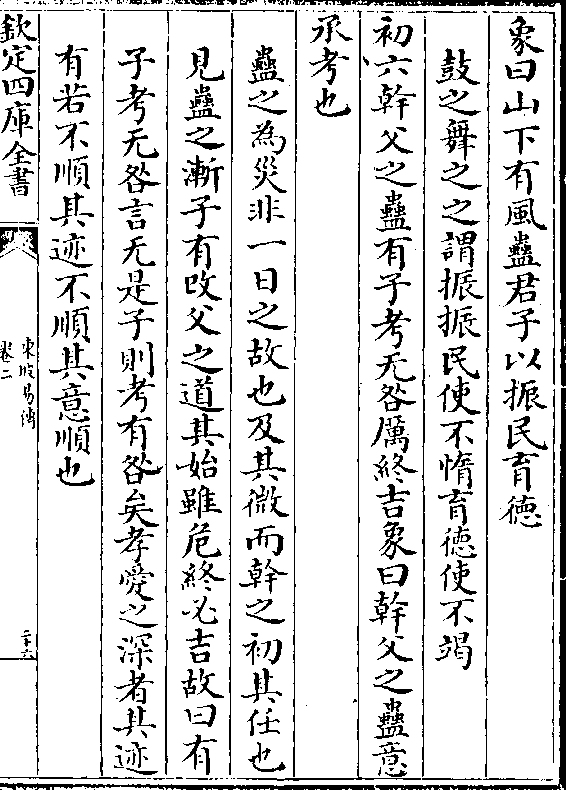 象曰山下有風蠱君子以振民育徳
鼓之舞之之謂振振民使不惰育徳使不竭
初六幹父之蠱有子考无咎厲終吉象曰幹父之蠱意
承考也
蠱之為災非一日之故也及其微而幹之初其任也
見蠱之漸子有改父之道其始雖危終必吉故曰有
子考无咎言无是子則考有咎矣孝愛之深者其迹
有若不順其迹不順其意順也
欽定四庫全書
東坡易傳
卷二
二十六